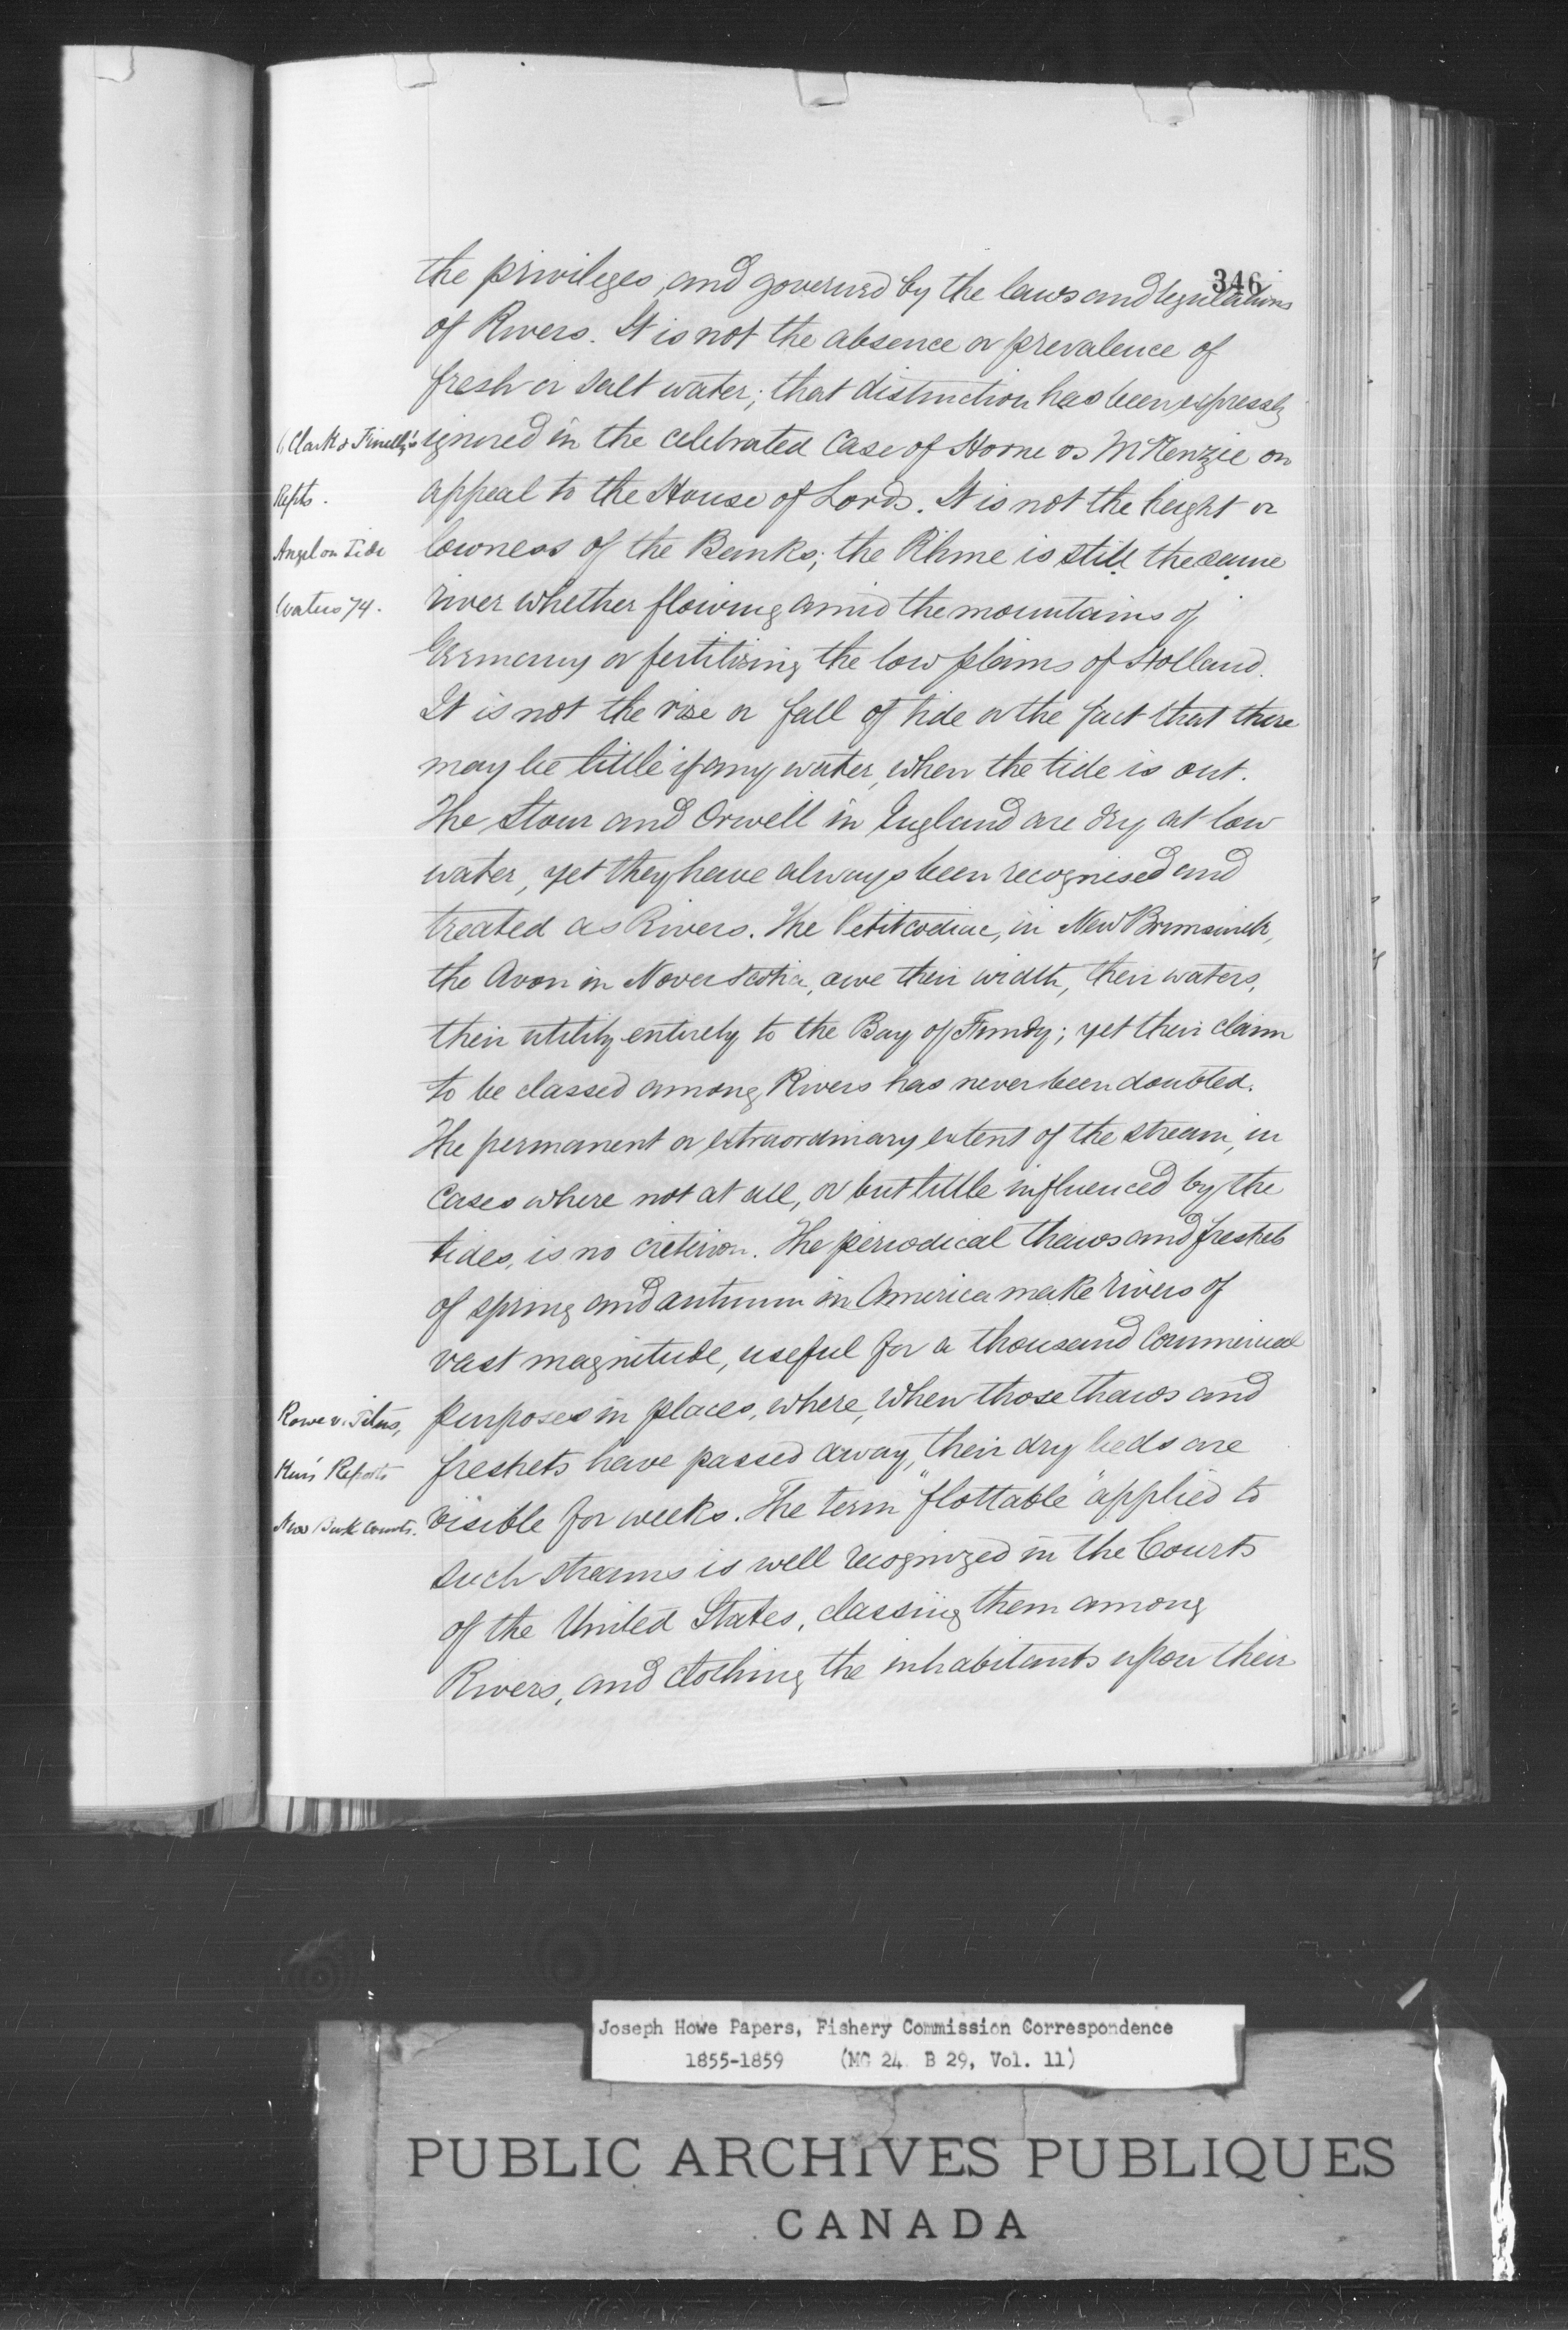 346
the privileges, and governed by the laws and regulations
of Rivers. It is not the absence or prevalence of
fresh or salt water; that distinction has been expressly
ignored in the celebrated Case of Horne vs McKenzie on
appeal to the House of Lords. It is not the height or
lowness of the Banks; the Rhine is still the same
river whether flowing amid the mountains of
Germany or fertilizing the low plains of Holland.
It is not the rise or fall of tide or the fact that there
may be little if any water, when the tide is out.
The Stour and Orwell in England are dry at low
water, yet they have always been recognised and
treated as Rivers. The Petitcodiac, in New Brunswick,
the Avon in Nova Scotia, owe their width, their waters,
their utility entirely to the Bay of Fundy; yet their claim
to be classed among Rivers has never been doubted.
The permanent or extraordinary extent of the stream, in
Cases where not at all, or but little influenced by the
tides, is no criterion. The periodical thaws and freshets
of spring and autumn in America make rivers of
vast magnitude, useful for a thousand Commercial
purposes in places, where, when those thaws and
freshets have passed away, their dry beds are
visible for weeks. The term "flottable" applied to
such streams is well recognized in the Courts
of the United States, classing them among
Rivers, and clothing the inhabitants upon their
Clark & Finelly's
Repts.
Angel on Tide
Waters 74.
Rowe v. Titus,
Reports
New Courts.
Joseph Howe Papers, Fishery Commission Correspondence
1855-1859 (MG 24 B 29, Vol. 11)
PUBLIC ARCHIVES PUBLIQUES
CANADA